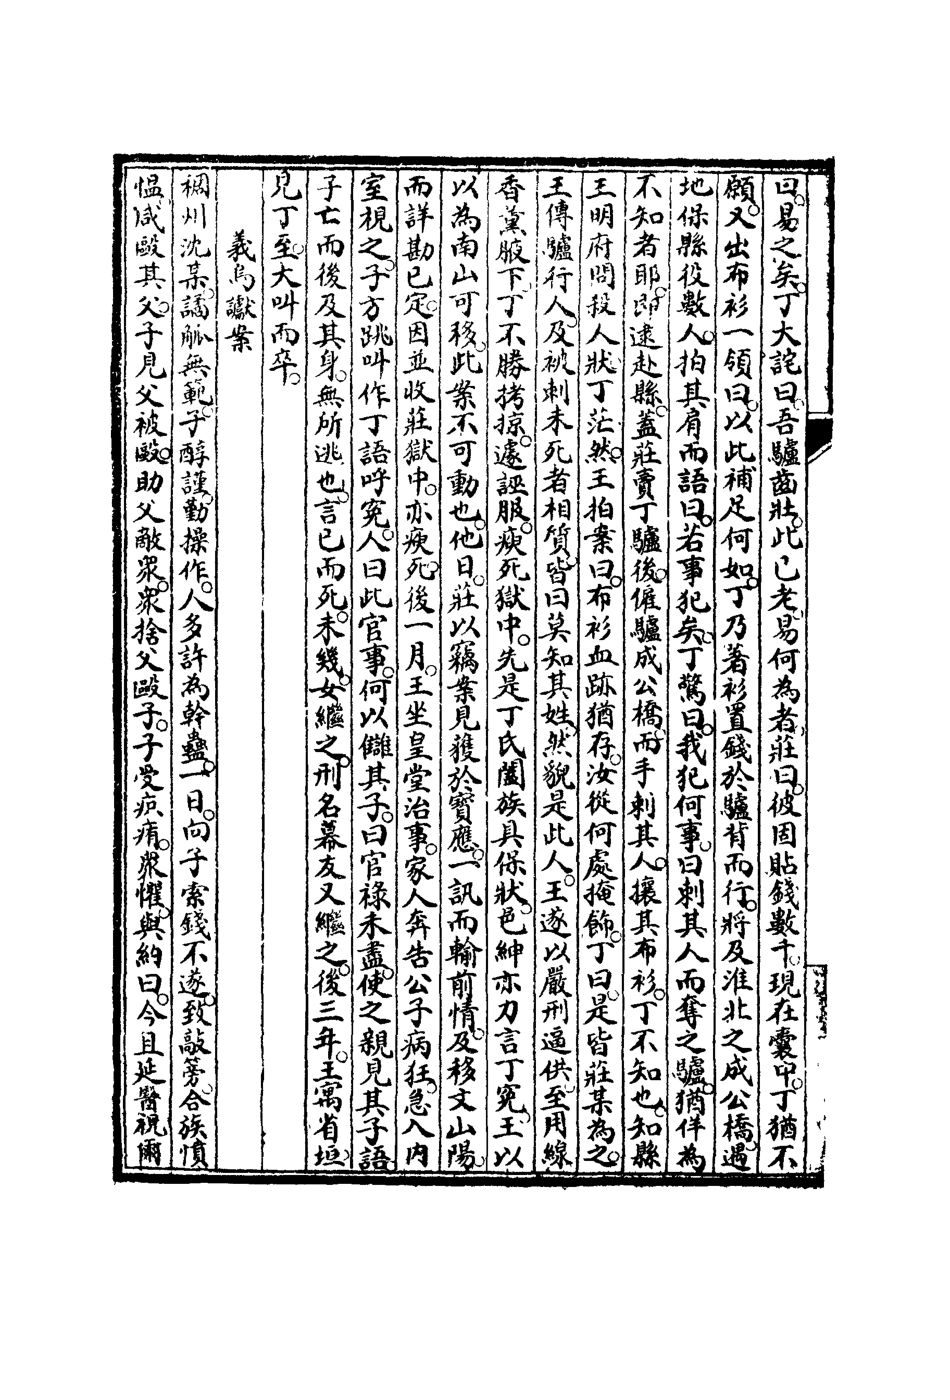 曰。易之矣。丁大詫曰。吾驢齒壯。此已老。易何為者。莊曰。彼固貼錢數千。現在囊中。丁猶不
願。又出布衫一領曰。以此補足何如。丁乃著衫置錢於驢背而行。將及淮北之成公橋。遇
地保縣役數人。拍其肩而語曰。若事犯矣。丁驚曰。我犯何事。曰刺其人而奪之驢。猶佯為
不知者耶。即逮赴縣。蓋莊賣丁驢後。僱驢成公橋。而手刺其人。攘其布衫。丁不知也。知縣
王明府問殺人狀。丁茫然。王拍案曰。布衫血跡猶存。汝從何處掩飾。丁曰。是皆莊某為之。
王傳驢行人。及被刺未死者相質。皆曰莫知其姓。然貌是此人。王遂以嚴刑逼供。至用線
香薰腋下。丁不勝拷掠。遽誣服。瘐死獄中。先是丁氏闔族具保狀。邑紳亦力言丁冤。王以
以為南山可移。此案不可動也。他日。莊以竊案見獲於寶應。一訊而輸前情。及移文山陽。
而詳勘已定。因並收莊獄中。亦瘐死。後一月。王坐皇堂治事。家人奔告公子病狂。急入內
室視之。子方跳叫作丁語呼冤。人曰此官事。何以讎其子。曰官祿未盡。使之親見其子語。
子亡而後及其身。無所逃也。言已而死。未幾。女繼之。刑名幕友又繼之。後三年。王寓省垣。
見丁至。大叫而卒。
義烏讞案
稠州沈某。譎觚無範。子醇謹。勤操作。人多許為幹蠱。一日。向子索錢不遂。致敲篣。合族憤
愠。咸毆其父。子見父被毆。助父敵眾。眾捨父毆子。子受疻痏。眾懼。與約曰。今且延醫視爾